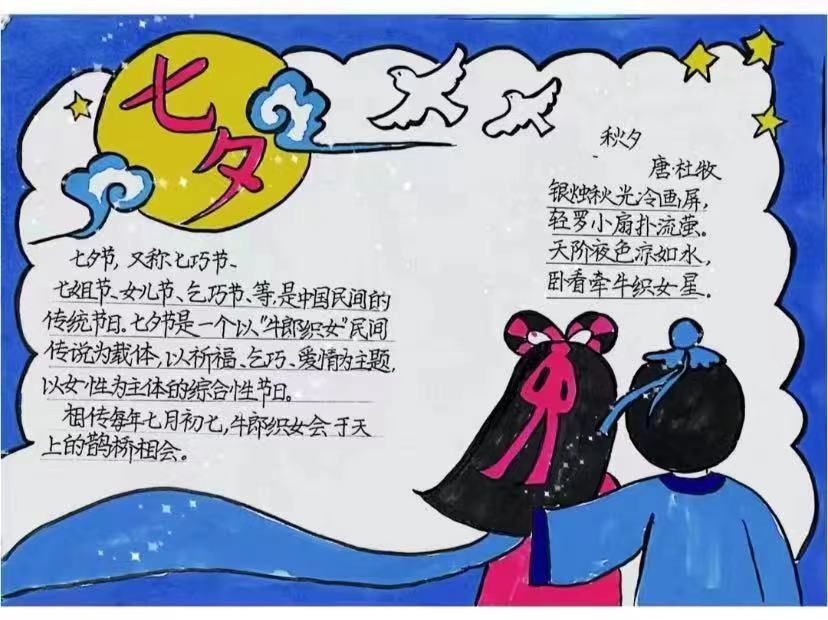 七夕
七夕节，又称七巧节、
七姐节、女儿节、乞巧节、等，是中国民间的
传统节日。七夕节是一个以“牛郎织女”民间
传说为载体，以祈福、乞巧、爱情为主题，
以女性为主体的综合性节日。
祖传每年七月初七，牛郎织女会于天
上的鹊桥相会。
秋夕
唐·杜牧
银烛秋光冷画屏，
轻罗小扇扑流萤。
天阶夜色凉如水，
卧看牵牛织女星。